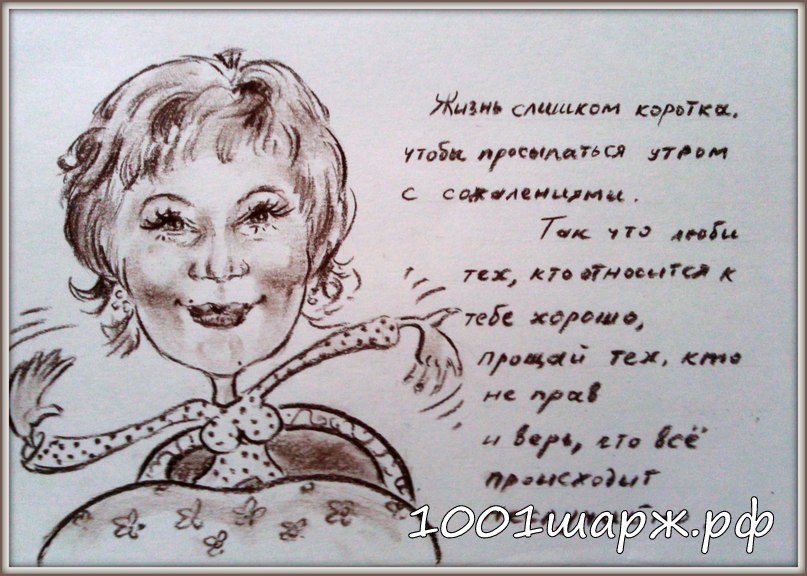 Жизнь слишком коротка,
чтобы просыпаться утром
с сожалениями.
Так что люби
тех, кто относится к
тебе хорошо,
прощай тех, кто
не прав
и верь, что всё
происходит
1001шарж.рф